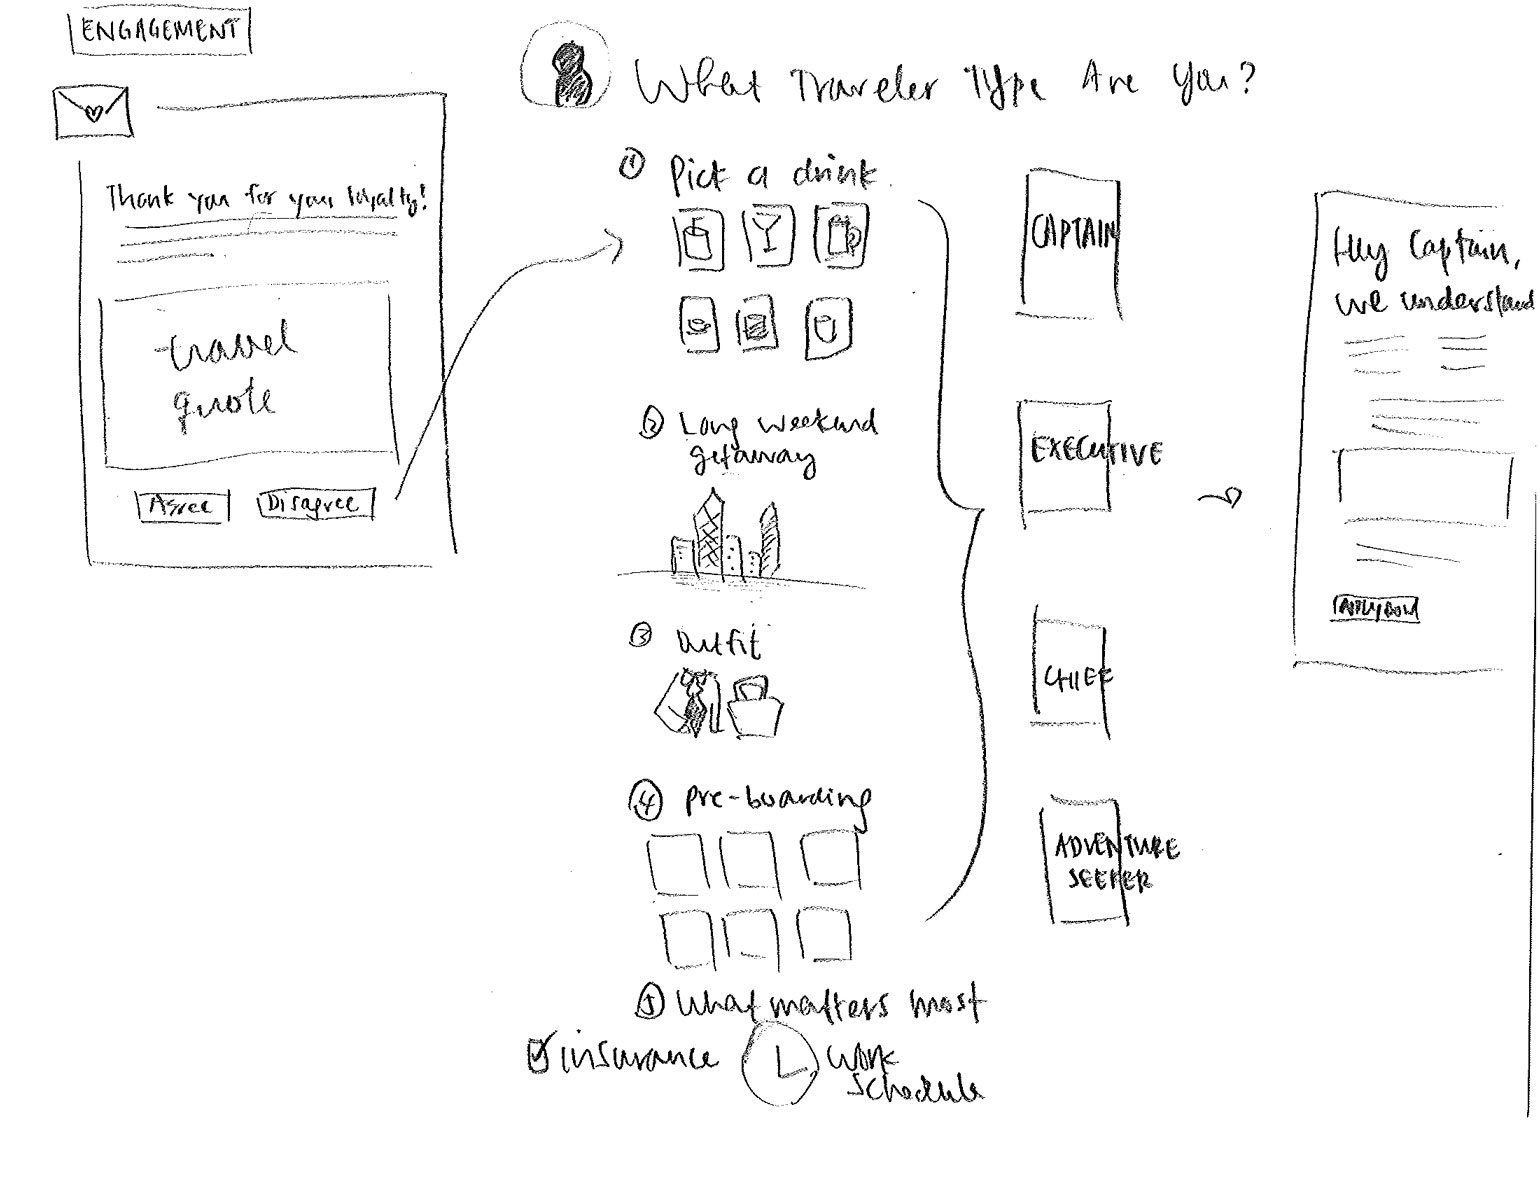 ENGAGEMENT
Thank you for your loyalty!
travel
quote
Agree
Disagree
What Traveler Type Are You?
① Pick a drink.
② Long weekend
getaway
③ Outfit
④ pre-boarding
⑤ What matters most
insurance
work
schedule
CAPTAIN
EXECUTIVE
CHIEF
ADVENTURE
SEEKER
Hey Captain,
we understand
Apply now